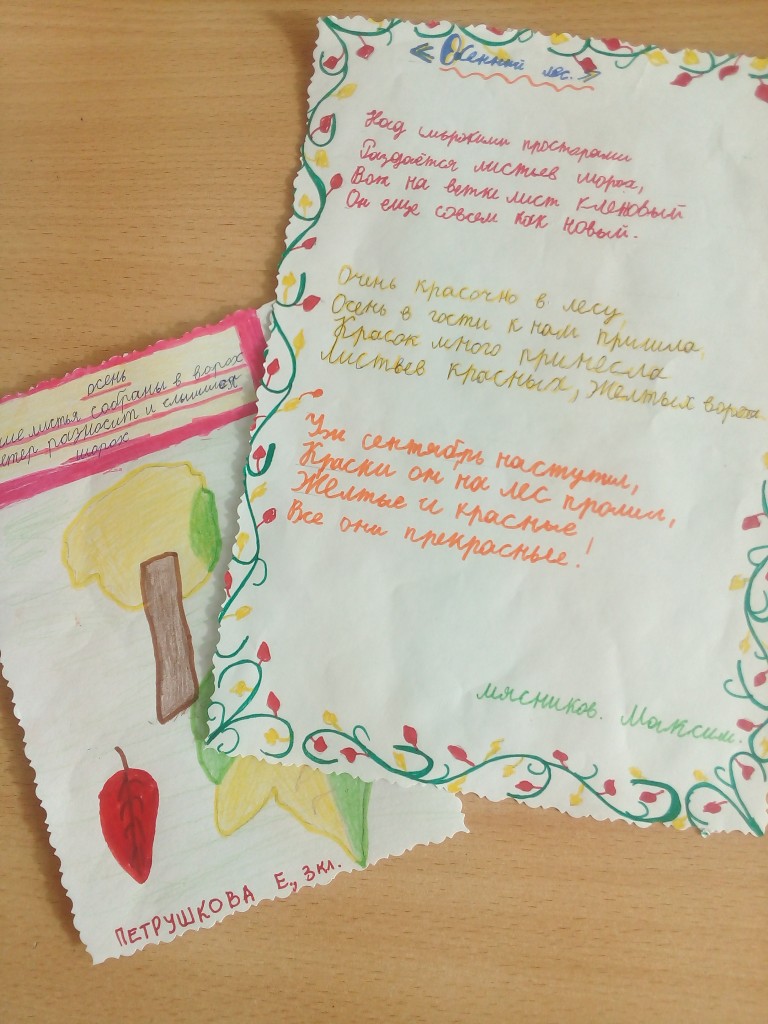 « Осенний лес. »
Над широкими просторами
Раздаётся листьев шорох,
Вот на ветке лист кленовый
Он еще совсем как новый.
Очень красочно в лесу,
Осень в гости к нам пришла,
Красок много принесла
Листьев красных, желтых ворох.
Уж сентябрь наступил,
Краски он на лес пролил,
Желтые и красные
Все они прекрасные!
мясников. Максим.
осень
листья собраны в ворох
ветер разносит и слышится
шорох
ПЕТРУШКОВА Е., 3 кл.